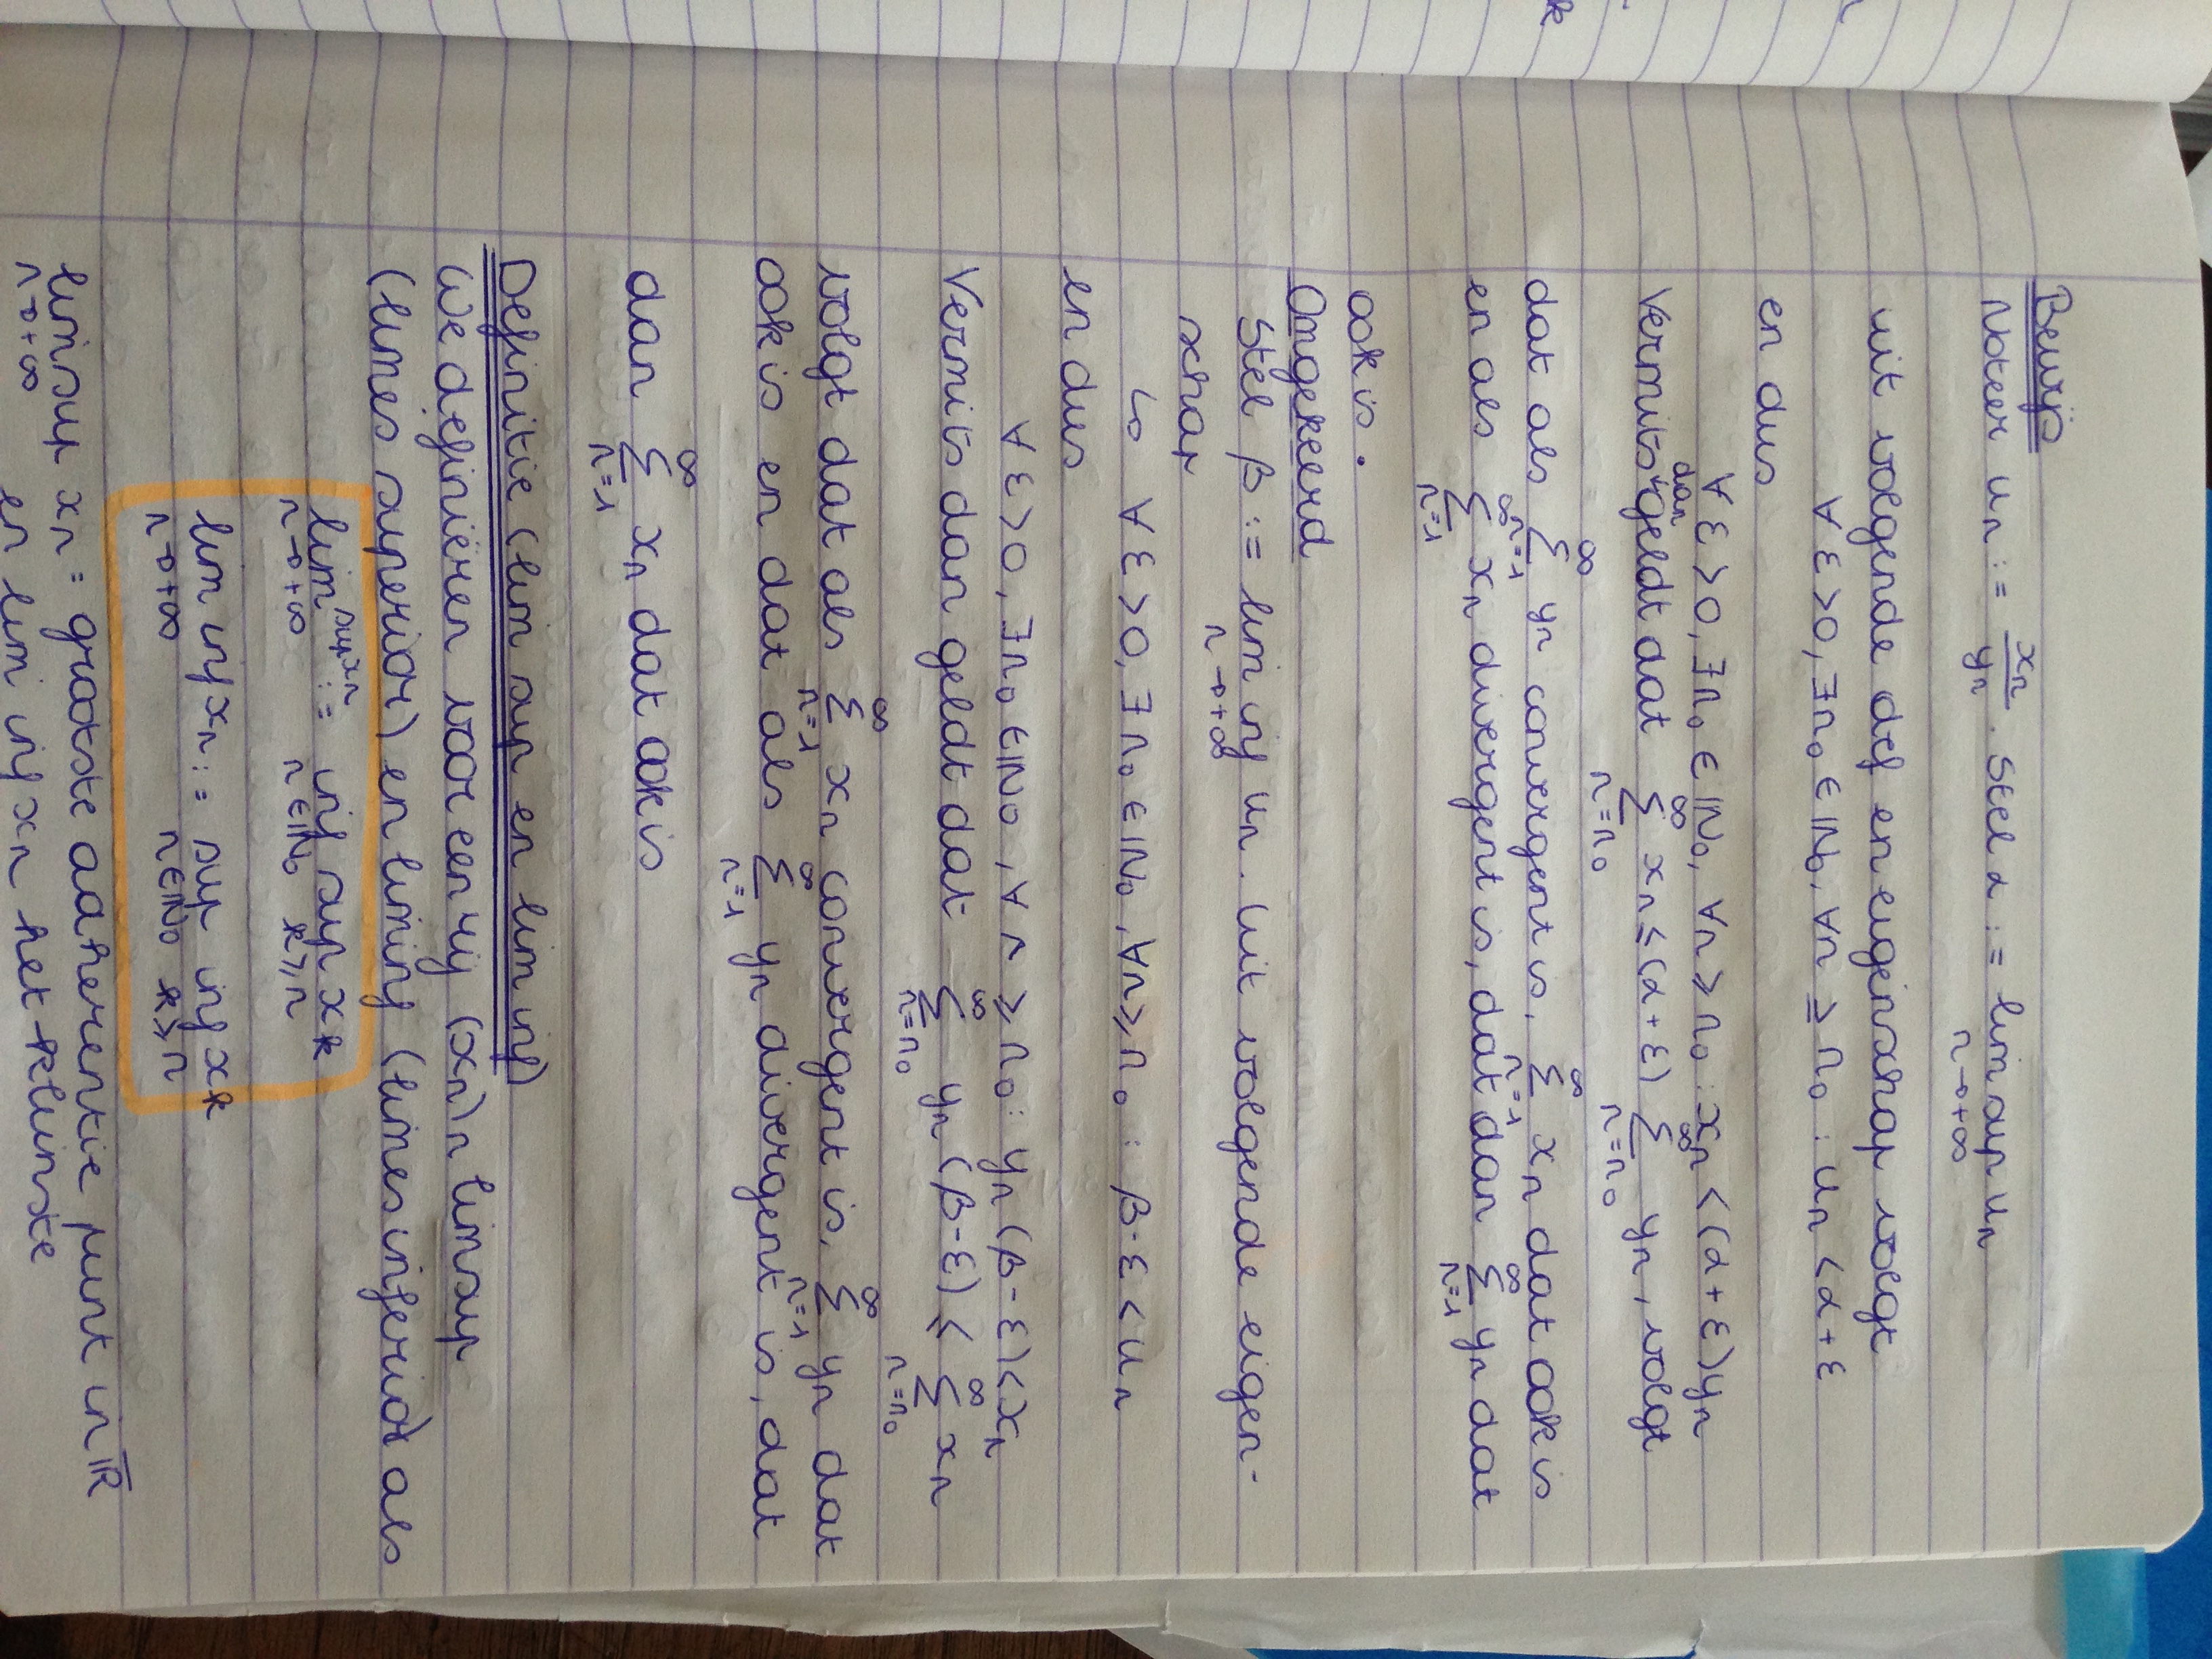 Bewijs
Noteer uₙ := xₙ/yₙ. Stel α := limsup uₙ
n→+∞
uit volgende def en eigenschap volgt
∀ε>0, ∃n₀ ∈ ℕ₀, ∀n ≥ n₀ : uₙ < α+ε
en dus
∀ε>0, ∃n₀ ∈ ℕ₀, ∀n ≥ n₀ : xₙ < (α+ε)yₙ
Vermits dan geldt dat ∑_{n=n₀}^{∞} xₙ ≤ (α+ε) ∑_{n=n₀}^{∞} yₙ, volgt
dat als ∑_{n=1}^{∞} yₙ convergent is, ∑_{n=1}^{∞} xₙ dat ook is
en als ∑_{n=1}^{∞} xₙ divergent is, dat dan ∑_{n=1}^{∞} yₙ dat
ook is.
Omgekeerd
Stel β := lim inf uₙ. Uit volgende eigen-
n→+∞
schap
↳ ∀ε>0, ∃n₀ ∈ ℕ₀, ∀n ≥ n₀ : β-ε < uₙ
en dus
∀ε>0, ∃n₀ ∈ ℕ₀, ∀n ≥ n₀ : yₙ(β-ε) < xₙ
Vermits dan geldt dat ∑_{n=n₀}^{∞} yₙ(β-ε) ≤ ∑_{n=n₀}^{∞} xₙ
volgt dat als ∑_{n=1}^{∞} xₙ convergent is, ∑_{n=1}^{∞} yₙ dat
ook is en dat als ∑_{n=1}^{∞} yₙ divergent is, dat
dan ∑_{n=1}^{∞} xₙ dat ook is
Definitie (lim sup en lim inf)
We definiëren voor een rij (xₙ)ₙ limsup
(limes superior) en liminf (limes inferior) als
lim sup xₙ := inf sup xₖ
n→+∞ n∈ℕ₀ k≥n
lim inf xₙ := sup inf xₖ
n→+∞ n∈ℕ₀ k≥n
limsup xₙ = grootste adherentie punt in ℝ̅
n→+∞
en lim inf xₙ het kleinste